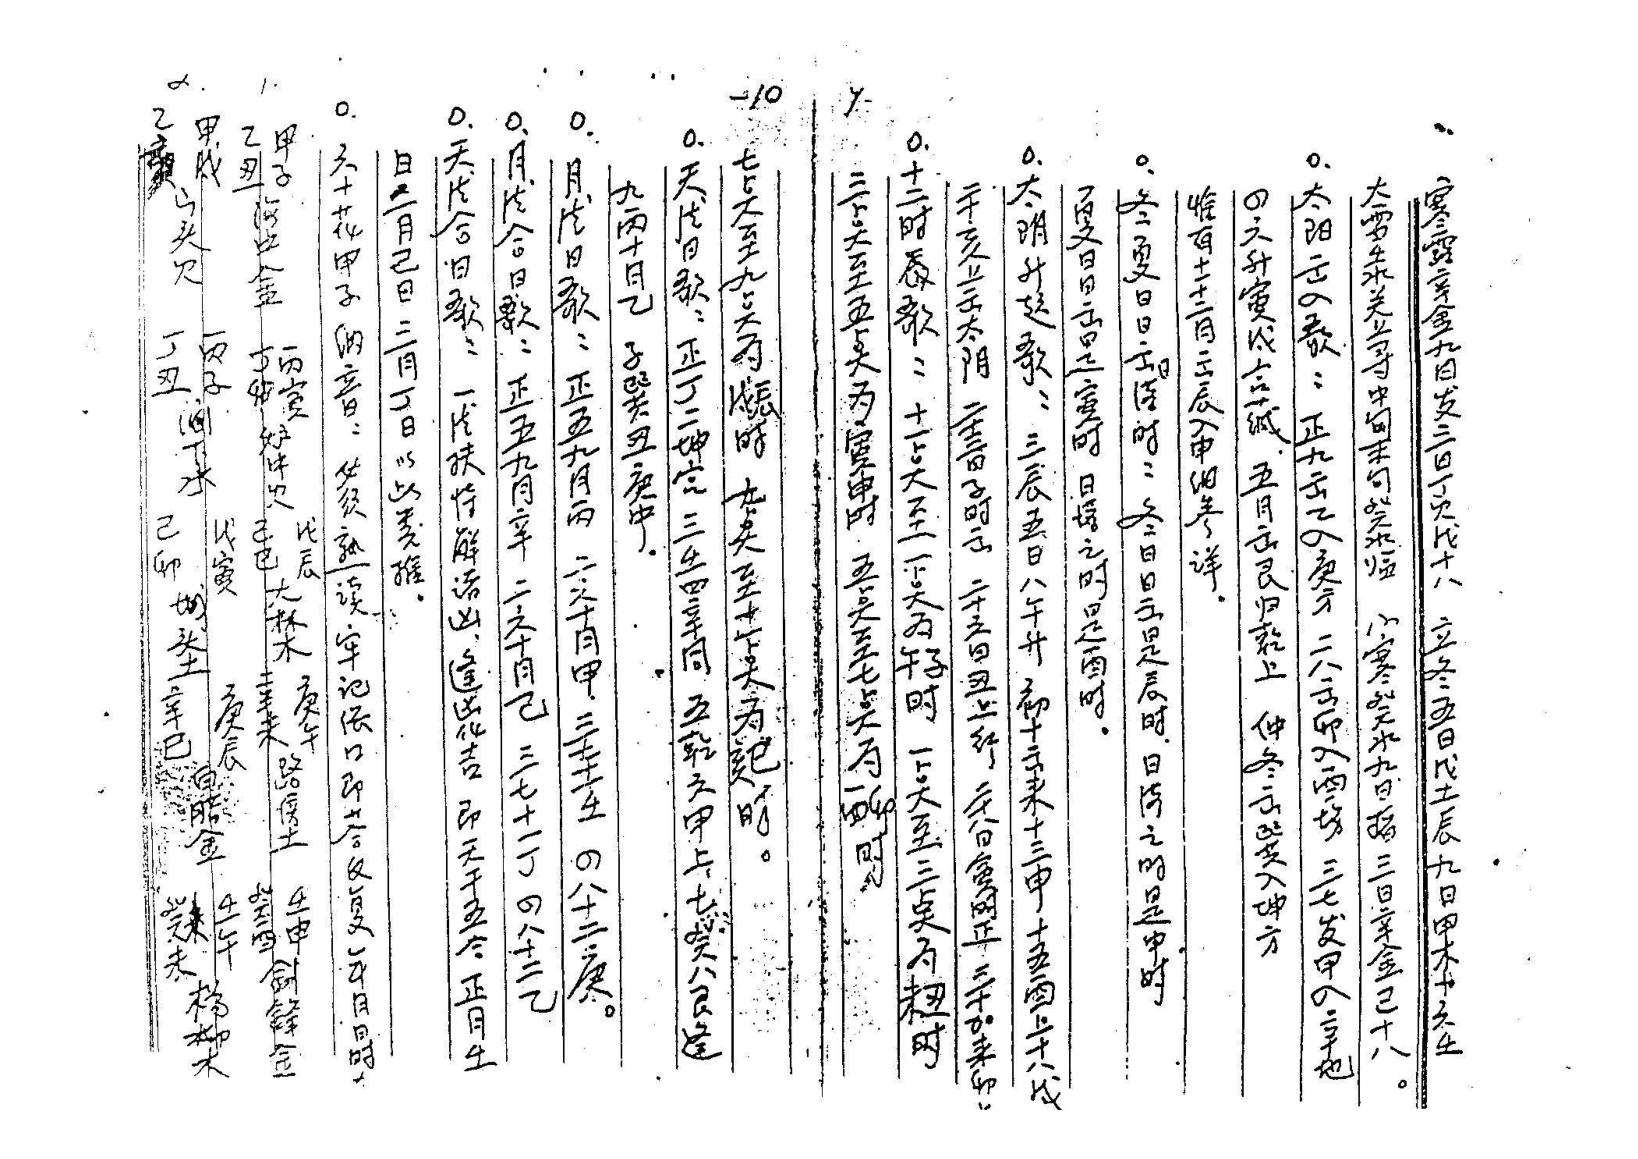 寒露辛金九日发 三日丁火戊十八 立冬五日戊土辰 九日甲木十六壬
大雪壬水 寻中旬末旬癸水临 小寒癸水九日 三日辛金己十八。
0. 太阳出入歌: 正九出乙入庚方 二八出卯入酉场 三七发甲入辛地
四六升寅戌 五月出艮归乾上 仲冬出巽入坤方
惟有十十二月出辰入申细参详.
0. 冬夏日日出 时: 冬日日出是辰时. 日落之时是申时
夏日日出是寅时 日落之时是酉时.
0. 太阴升起歌: 三辰五日八午升 初十出未十三申 十五酉上十八戌
二十亥上出太阴 二十三日子时出 二十六日丑上行 二十八日寅时正 三十加来卯上
0. 十二时辰歌: 十一点至一点为午子时 一点至三点为未丑时
7
三点至五点为寅申时 五点至七点为酉卯时
-10
七点至九点为戌辰时 九点至十一点为巳亥时。
0. 天德日歌: 正丁二坤宫 三壬四辛同 五乾六甲上 七癸八艮逢
九丙十月乙 子巽丑庚中.
0. 月德日歌: 正五九月丙 二六十月甲. 三七十一壬 四八十二庚。
0. 月德合日歌: 正五九月辛 二六十月己 三七十一丁 四八十二乙
0. 天德合日歌: 一德扶持解诸凶, 逢凶化吉 即天干五合 正月壬
日 二月己日 三月丁日 以此类推.
0. 六十花甲子纳音: 必须熟读 牢记 口即答 反复 年月日时
1. 甲子 乙丑 海中金 丙寅 丁卯 炉中火 戊辰 己巳 大林木 庚午 辛未 路傍土 壬申 癸酉 剑锋金
2. 甲戌 乙亥 山头火 丙子 丁丑 涧下水 戊寅 己卯 城头土 庚辰 辛巳 白腊金 壬午 癸未 杨柳木